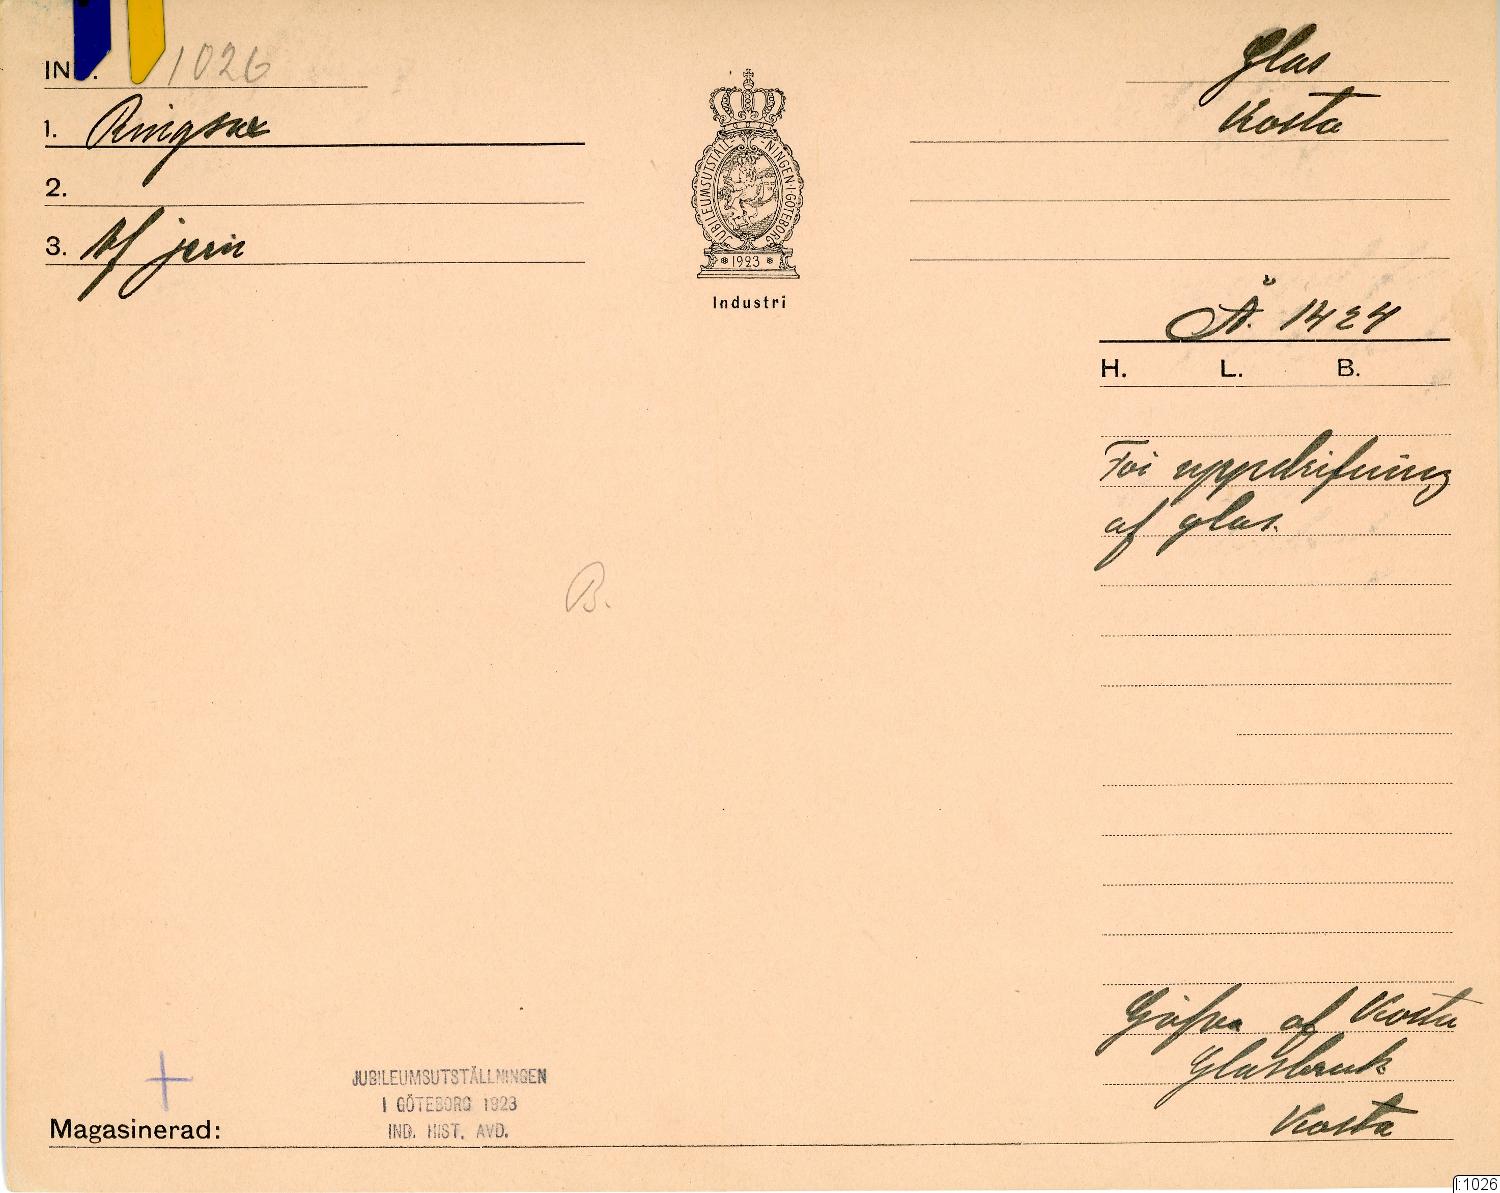 IN . 1026
1. Ringsax
2.
3. Af jern
JUBILEUMSUTSTÄLLNINGEN I GÖTEBORG
* 1923 *
Industri
Glas
Kosta
Å. 1424
H. L. B.
För uppdrifning
af glas.
B.
Gåfva af Kosta
Glasbruk
Kosta
JUBILEUMSUTSTÄLLNINGEN
I GÖTEBORG 1923
IND. HIST. AVD.
Magasinerad:
I:1026